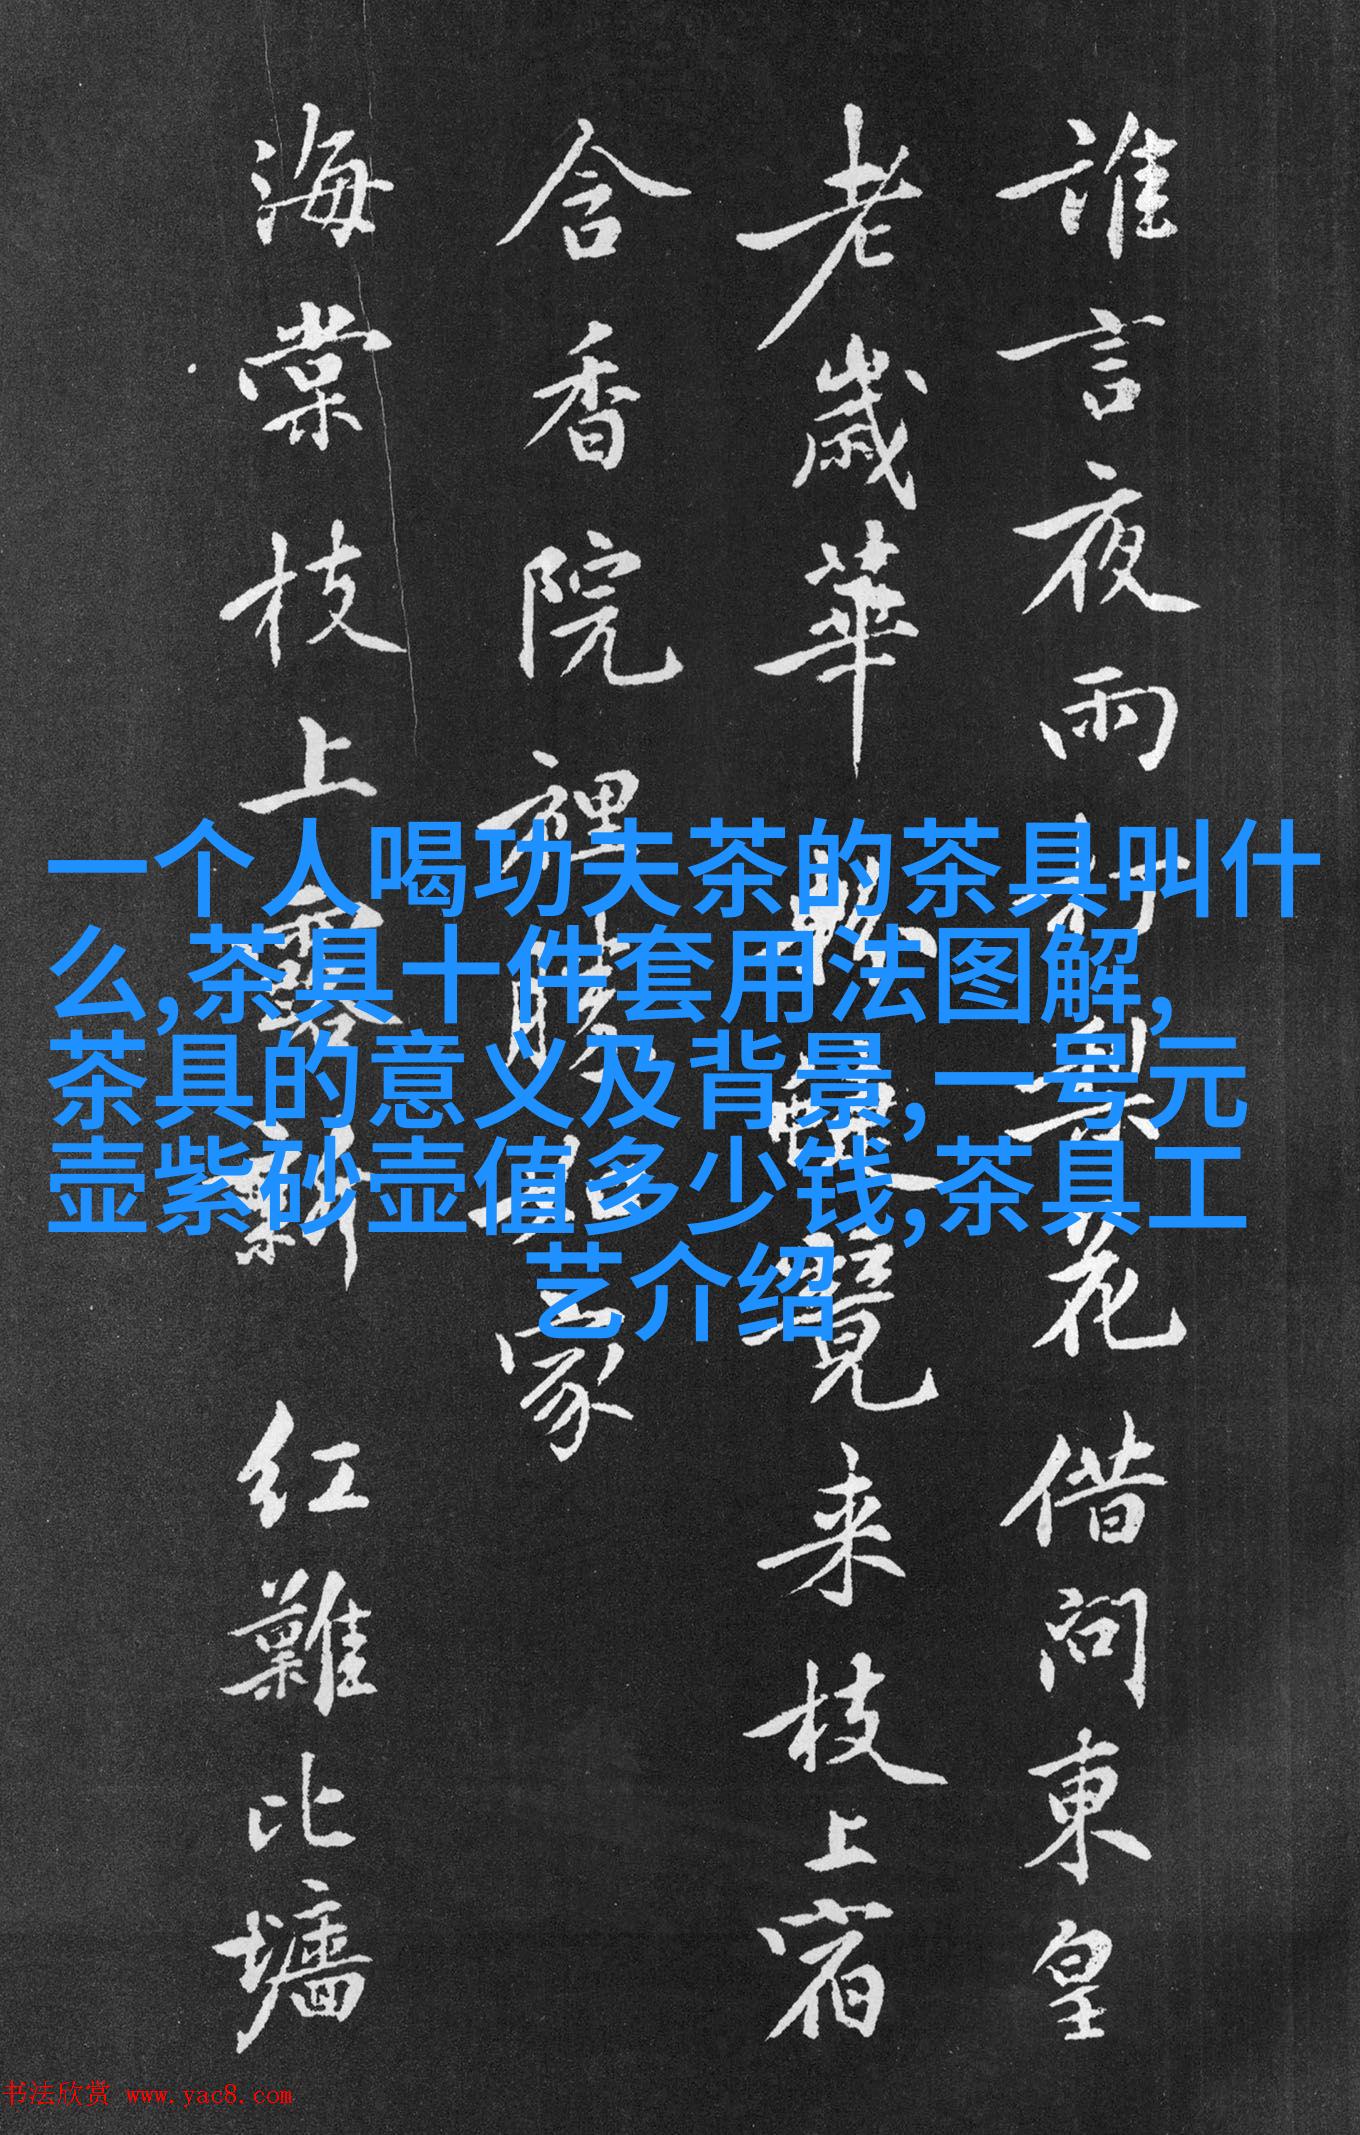 誰言夜雨花借問東皇
老歲華来枝上宿
含香院裡勝家
海棠枝上露新红難比墻
一个人喝功夫茶的茶具叫什
么,茶具十件套用法图解,
茶具的意义及背景,一号元
壶紫砂壶值多少钱,茶具工
艺介绍
书法欣赏 www.yac8.com